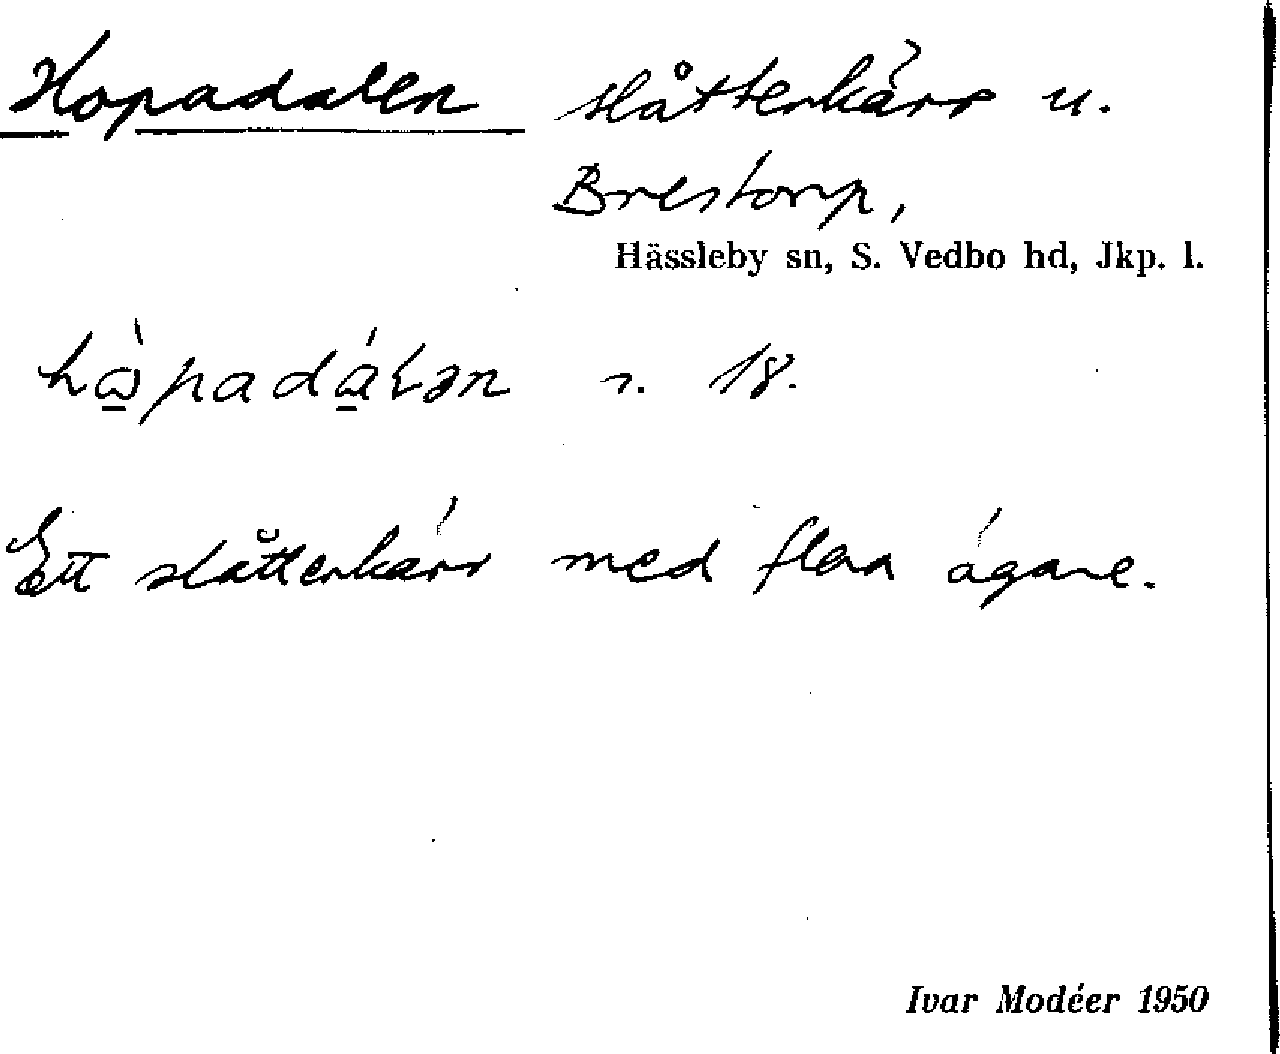 Hopadalen slåtterkärr u.
Brestorp,
Hässleby sn, S. Vedbo hd, Jkp. l.
18.
Ett slåtterkärr med flera ägare.
Ivar Modéer 1950